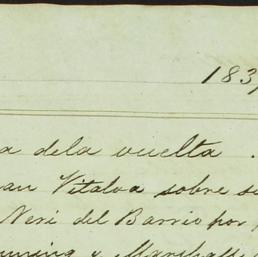 183
a dela vuelta .
an Vitalva sobre s
Neri del Barrio por
y Marshall